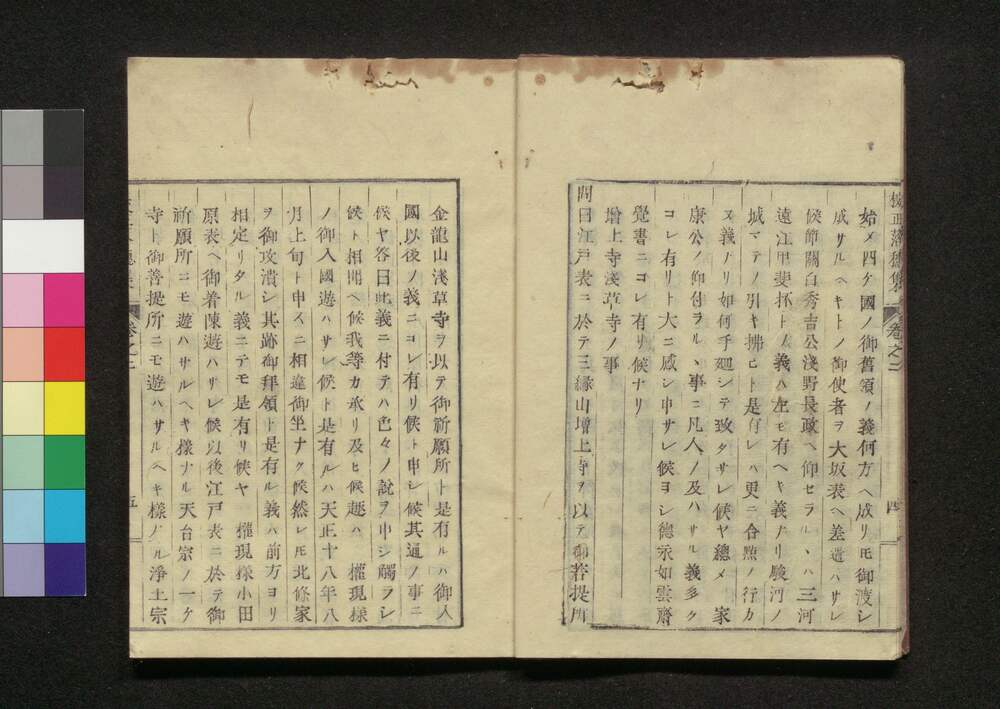 校正落穂集 巻之二 四
始メ四ケ國ノ御舊領ノ義何方ヘ成リモ御渡シ
成サルヘキトノ御使者ヲ大坂表ヘ差遣ハサレ
候節關白秀吉公淺野長政ヘ仰セラルヽハ三河
遠江甲斐抔トノ義ハ左モ有ヘキ義ナリ駿河ノ
城マテノ引キ拂ヒト是有レハ更ニ合點ノ行カ
ヌ義ナリ如何手廻シテ致タサレ候ヤ總メ 家
康公ノ仰付ラルヽ事ニ凡人ノ及ハサル義多ク
コレ有リト大ニ感シ申サレ候ヨシ德永如雲齋
覺書ニコレ有リ候ナリ
増上寺淺草寺ノ事
問曰江戸表ニ於テ三縁山増上寺ヲ以テ御菩提所
金龍山淺草寺ヲ以テ御祈願所ト是有ルハ御入
國以後ノ義ニコレ有リ候ト申シ候其通ノ事ニ
候ヤ答曰此義ニ付テハ色々ノ說ヲ申シ觸ラシ
候ト相聞ヘ候我等カ承リ及ヒ候趣ハ 權現様
ノ御入國遊ハサレ候ト是有ルハ天正十八年八
月上旬ト申スニ相違御坐ナク候然レ𪜈北條家
ヲ御攻潰シ其跡御拜領ト是有ル義ハ前方ヨリ
相定リタル義ニテモ是有リ候ヤ 權現様小田
原表ヘ御着陳遊ハサレ候以後江戸表ニ於テ御
祈願所ニモ遊ハサルヘキ様ナル天台宗ノ一ケ
寺ト御菩提所ニモ遊ハサルヘキ様ナル淨土宗
巻之二 五